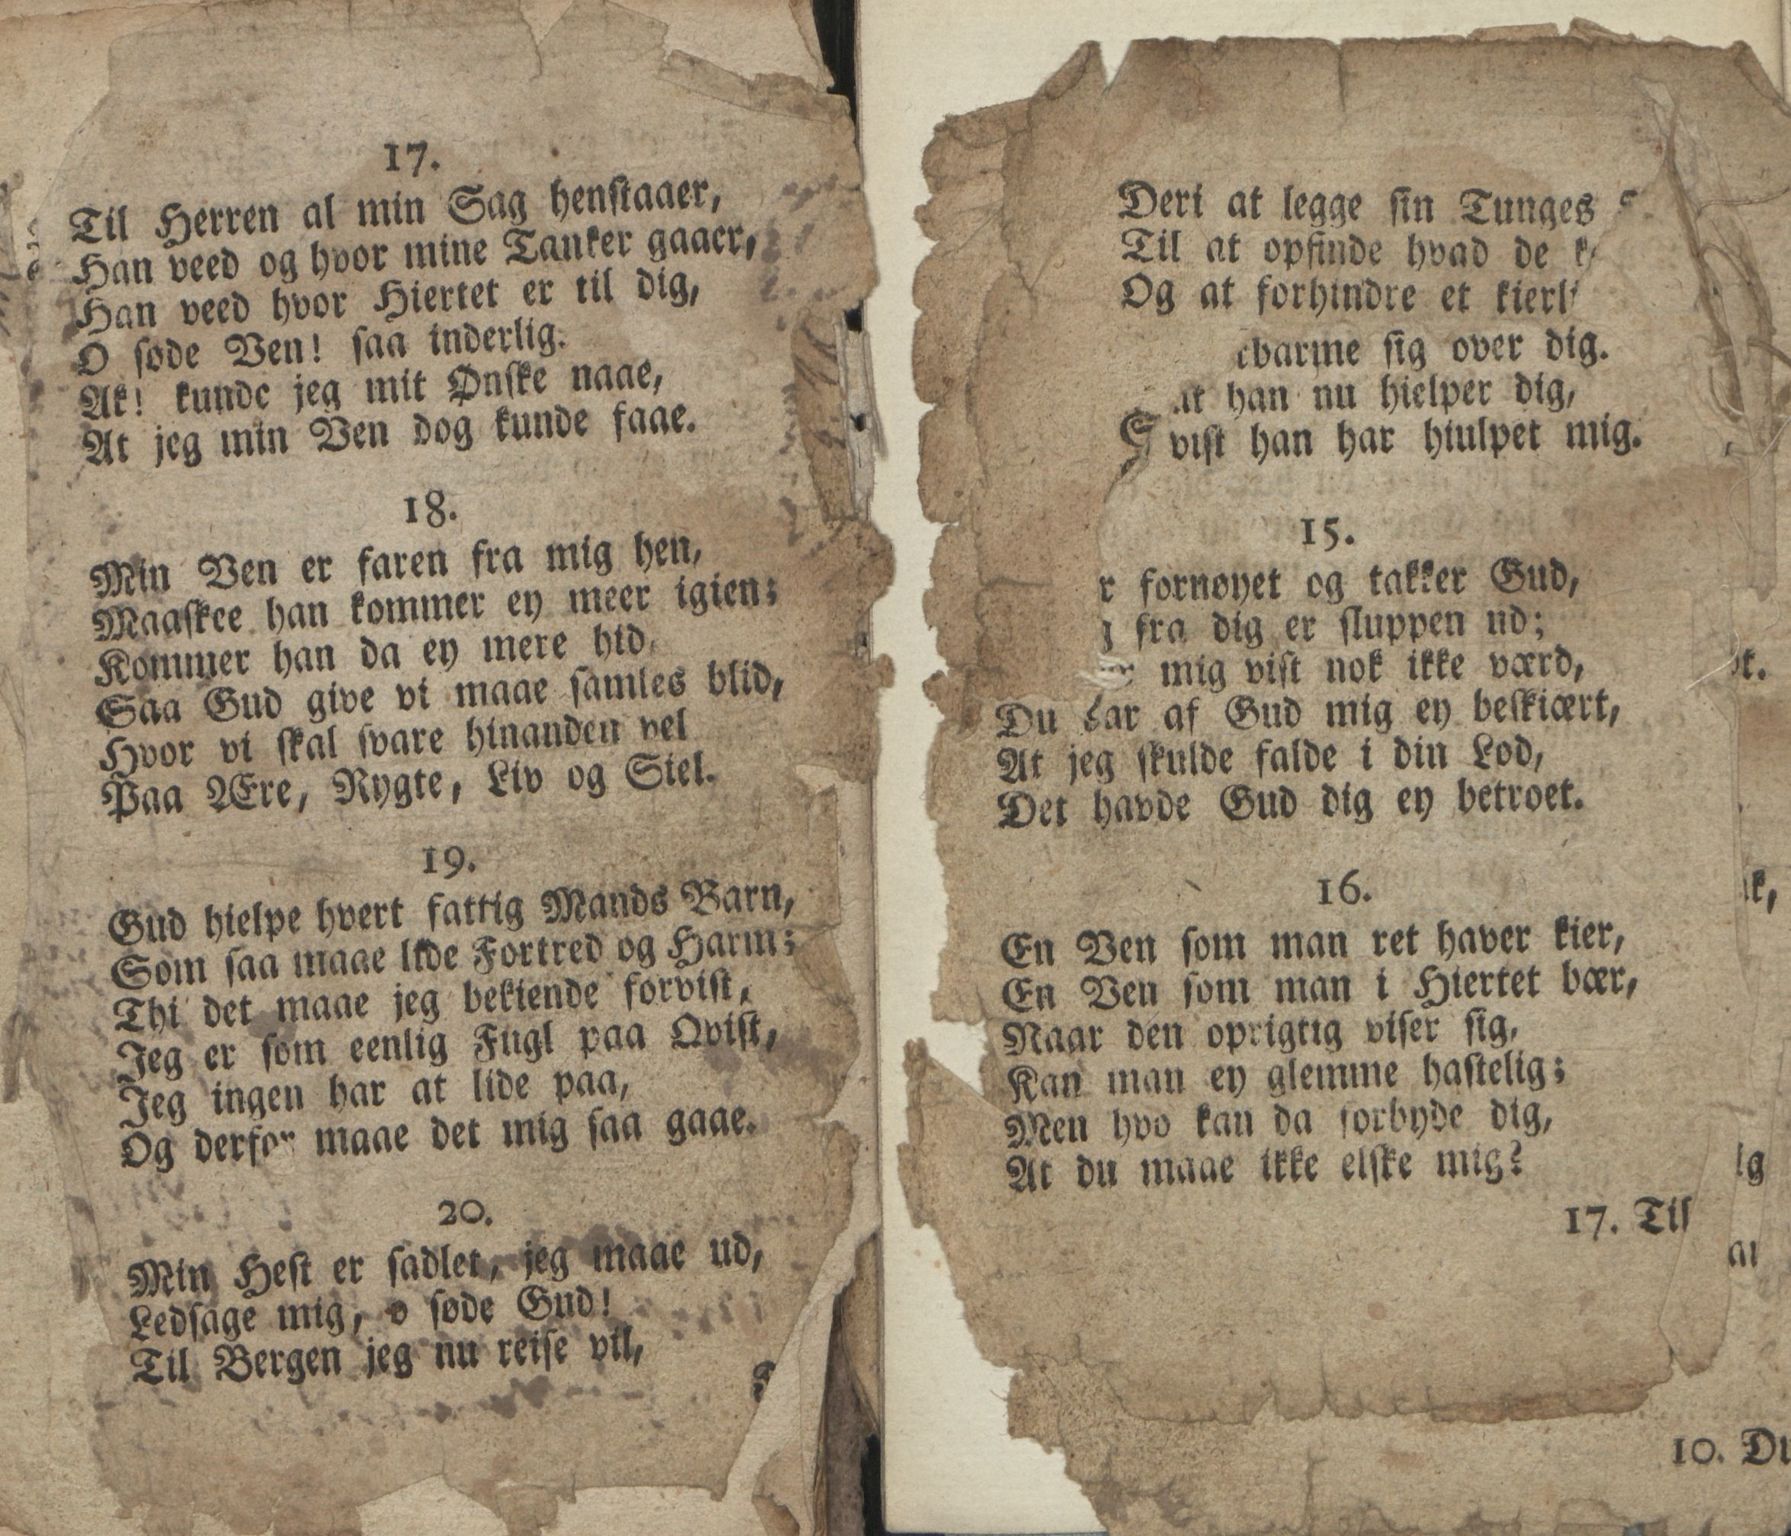 17.
Til Herren al min Sag henstaaer,
Han veed og hvor mine Tanker gaaer,
Han veed hvor Hiertet er til dig,
O søde Ven! saa inderlig.
Ak! kunde jeg mit Ønske naae,
At jeg min Ven dog kunde faae.
18.
Min Ven er faren fra mig hen,
Maaskee han kommer ey meer igien;
Kommer han da ey mere hid,
Saa Gud give vi maae samles blid,
Hvor vi skal svare hinanden vel
Paa Ære, Rygte, Liv og Siel.
19.
Gud hielpe hvert fattig Mands Barn,
Som saa maae lide Fortred og Harm;
Thi det maae jeg bekiende forvist,
Jeg er som eenlig Fugl paa Qvist,
Jeg ingen har at lide paa,
Og derfor maae det mig saa gaae.
20.
Min Hest er sadlet, jeg maae ud,
Ledsage mig, o søde Gud!
Til Bergen jeg nu reise vil,
Deri at legge sin Tunges
Til at opfinde hvad de
Og at forhindre et
sig over dig.
han nu hielper dig,
vist han har hiulpet mig.
15.
fornøyet og takker Gud,
fra dig er sluppen ud;
mig vist nok ikke værd,
Du var af Gud mig ey beskiært,
At jeg skulde falde i din Lod,
Det havde Gud dig ey betroet.
16.
En Ven som man ret haver kier,
En Ven som man i Hiertet bær,
Naar den oprigtig viser sig,
Kan man ey glemme hastelig;
Men hvo kan da forbyde dig,
At du maae ikke elske mig?
17. Til
10. Du